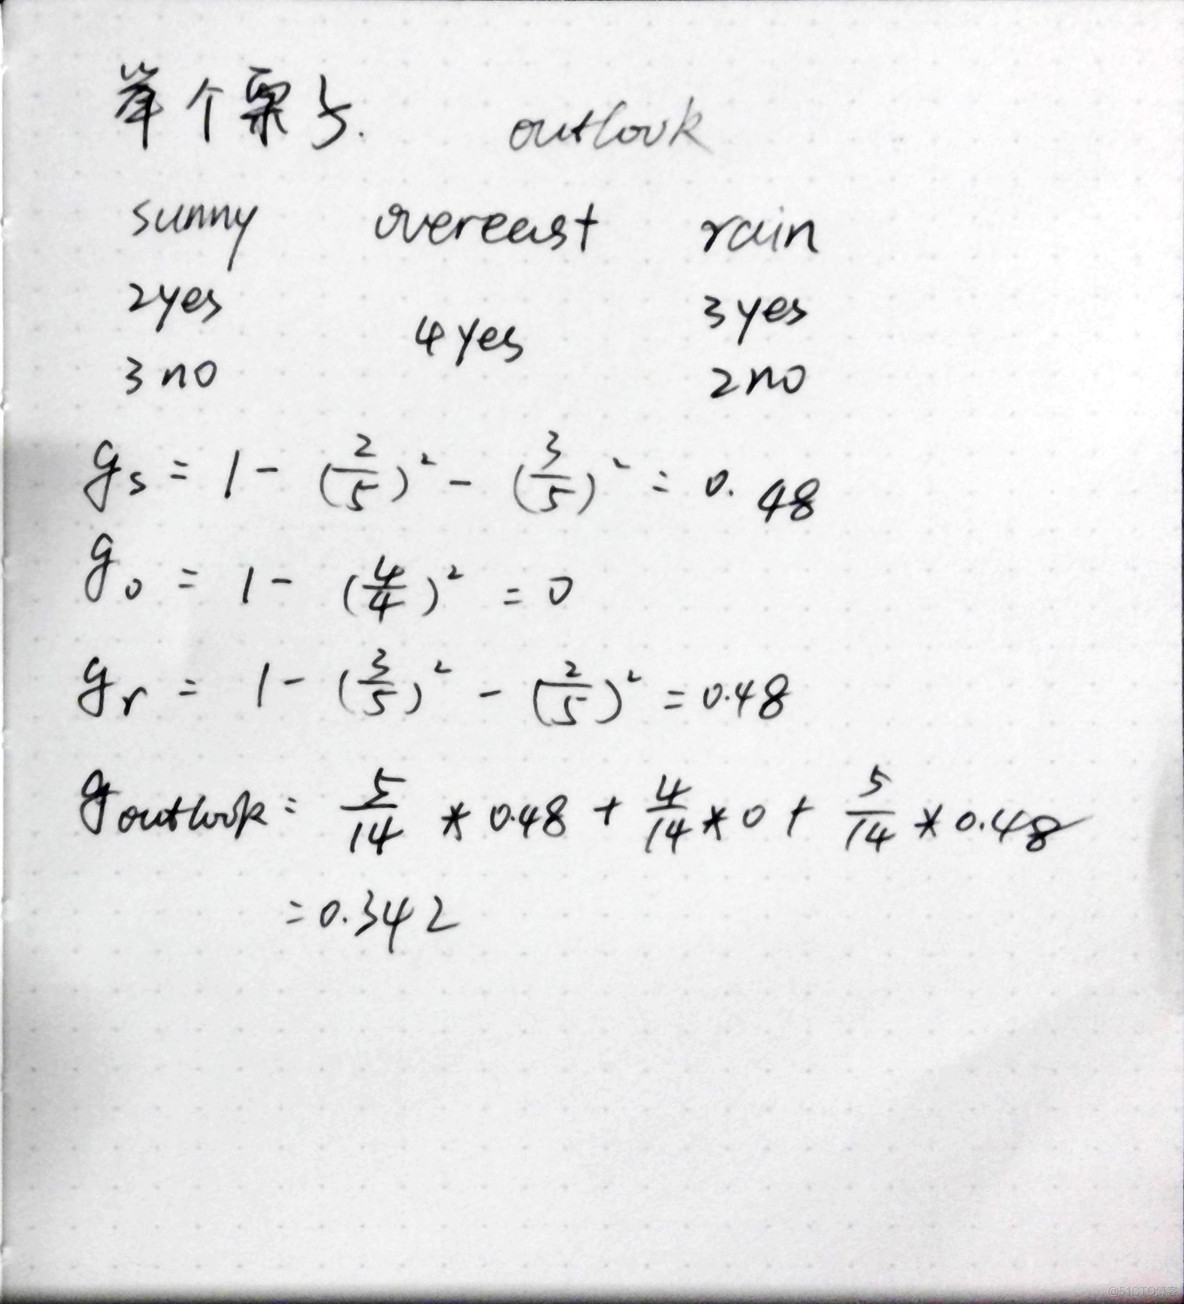 举个栗子. outlook
sunny overeast rain
2yes 4yes 3yes
3no 2no
gs = 1 - (2/5)² - (3/5)² = 0.48
go = 1 - (4/4)² = 0
gr = 1 - (3/5)² - (2/5)² = 0.48
goutlook = 5/14 * 0.48 + 4/14 * 0 + 5/14 * 0.48
= 0.342
@51CTO博客